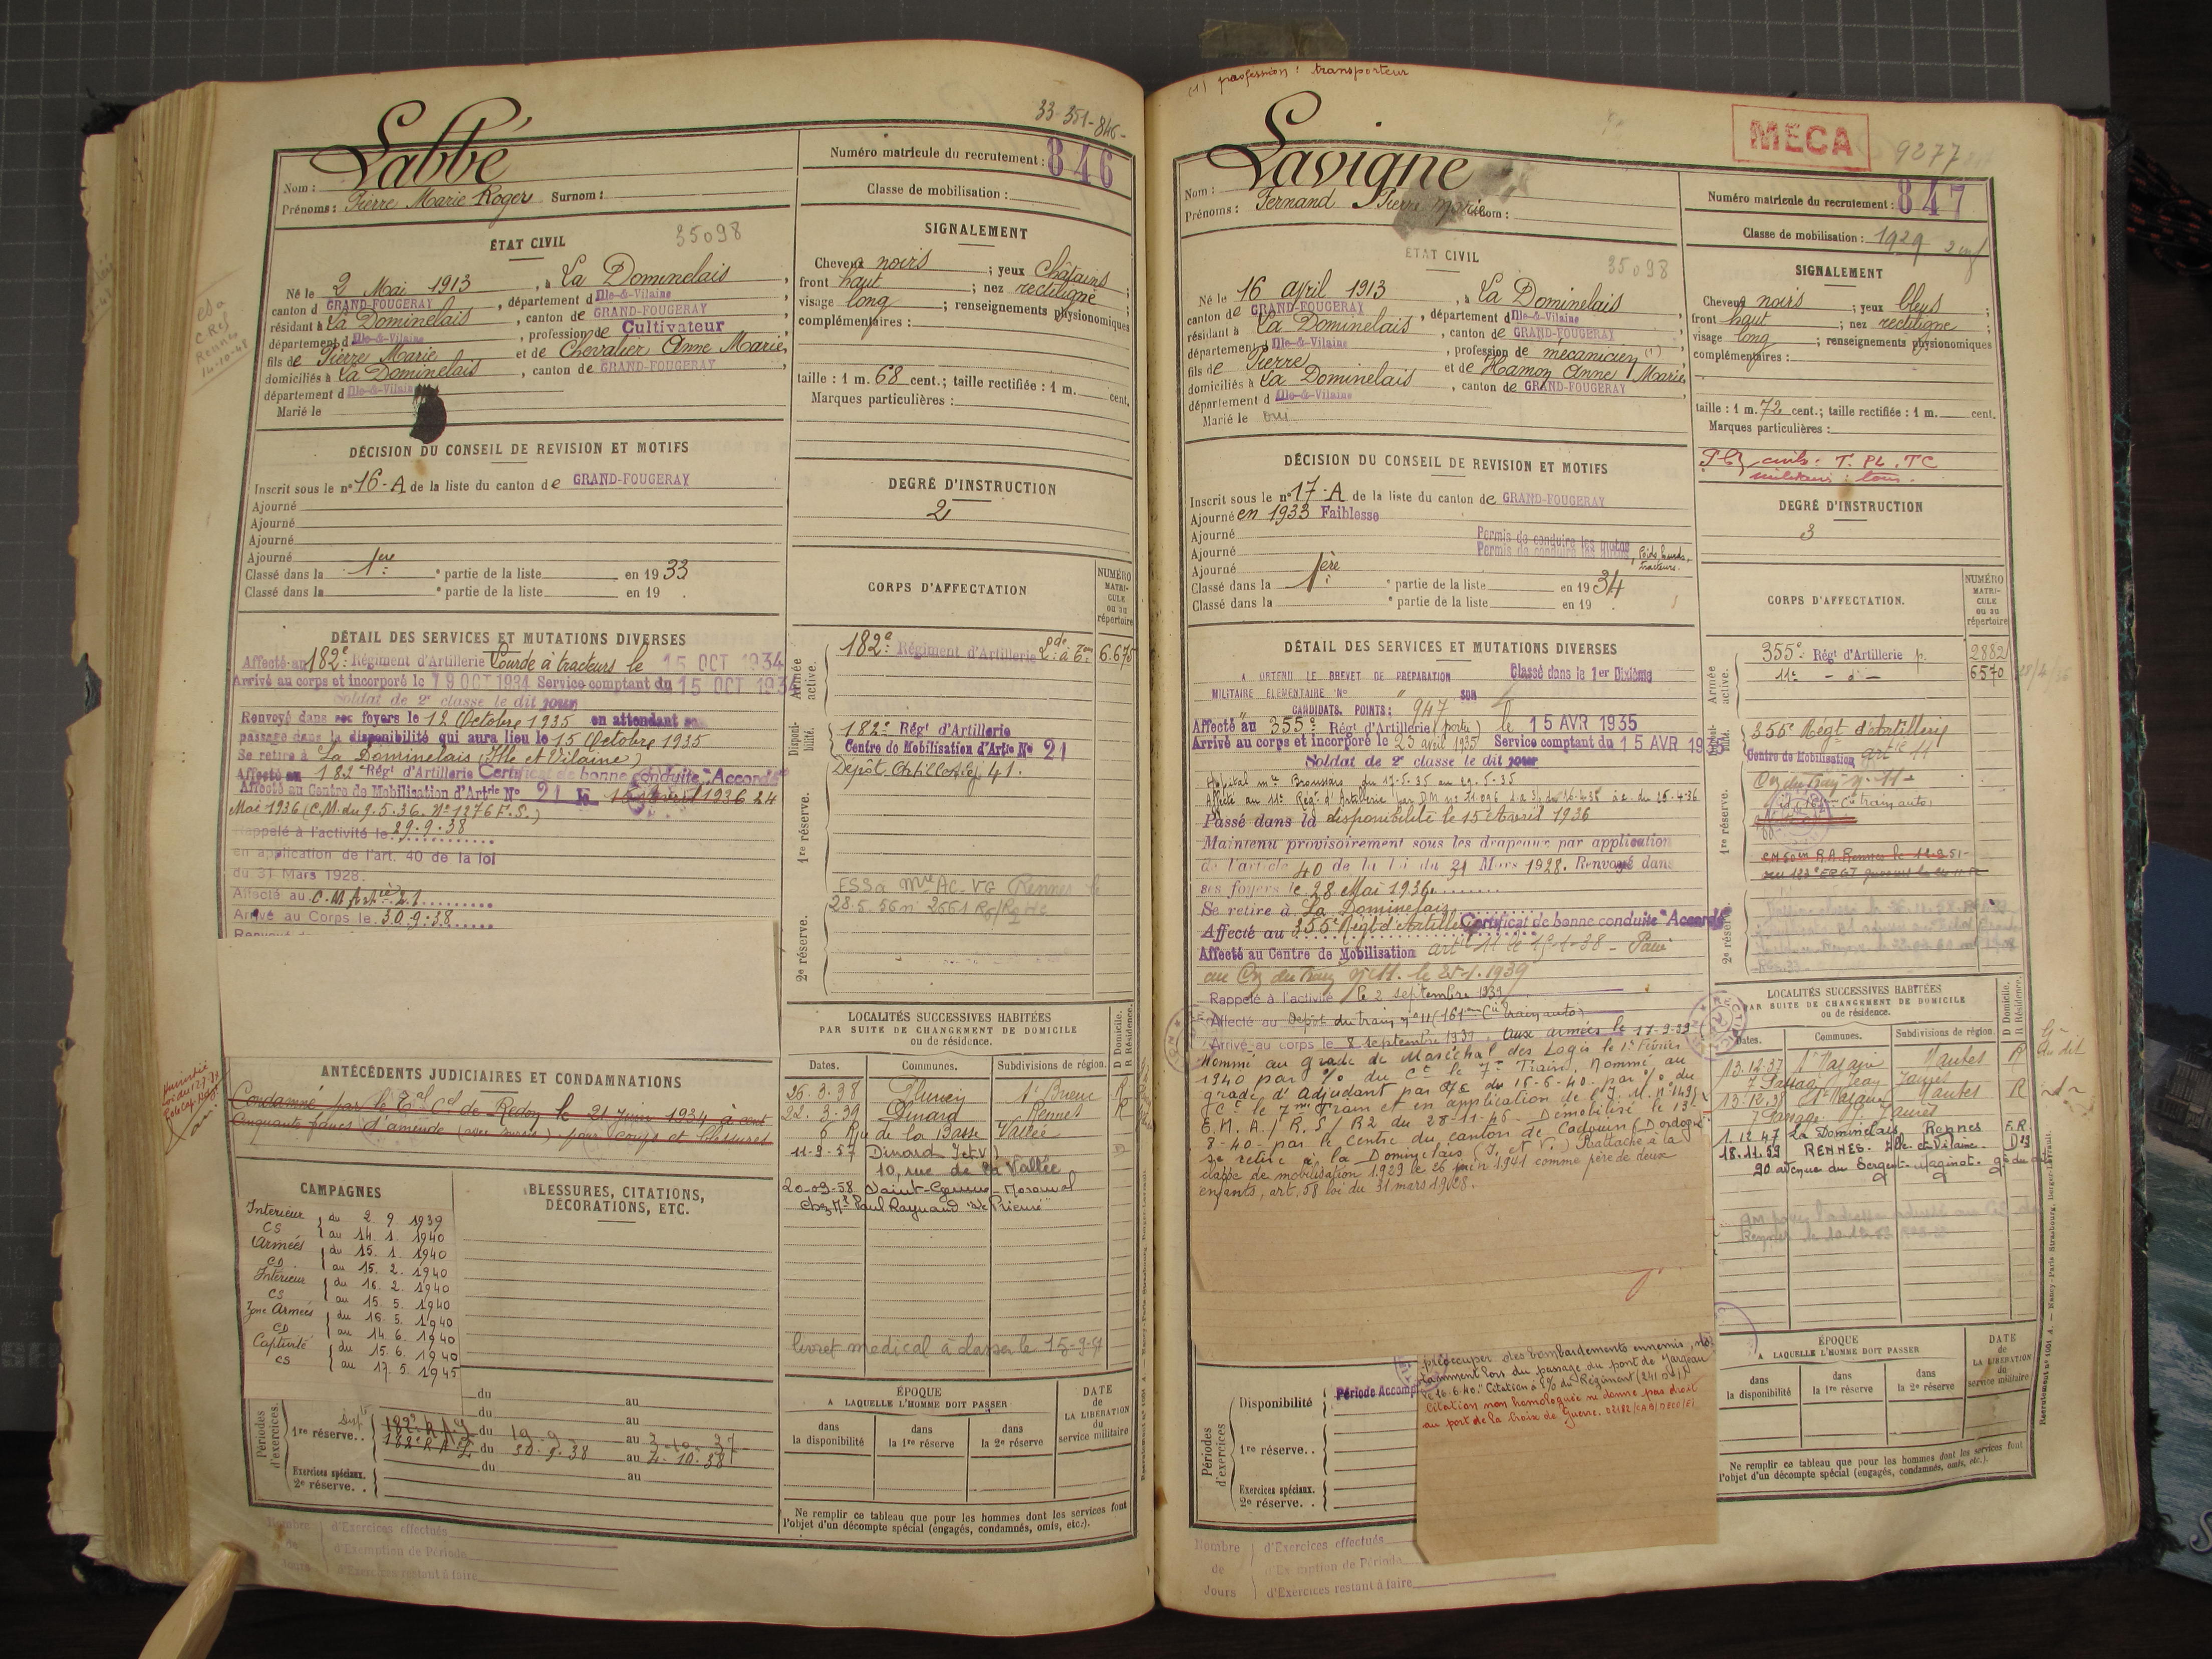 33-351-846-
Labbé
Nom :
Prénoms : Pierre Marie Roger Surnom :
Numéro matricule du recrutement : 846
Classe de mobilisation :
ÉTAT CIVIL
35098
Né le 2 Mai 1913, à La Dominelais,
canton d GRAND-FOUGERAY, département d Ille-&-Vilaine,
résidant à La Dominelais, canton de GRAND-FOUGERAY,
département d Ille-&-Vilaine, profession de Cultivateur
fils de Pierre Marie et de Chevalier Anne Marie,
domiciliés à La Dominelais, canton de GRAND-FOUGERAY
département d Ille-&-Vilaine
Marié le
SIGNALEMENT
Cheveux noirs ; yeux Châtains ;
front haut ; nez rectiligne ;
visage long ; renseignements physionomiques
complémentaires :
taille : 1 m. 68 cent.; taille rectifiée : 1 m. cent.
Marques particulières :
DÉCISION DU CONSEIL DE REVISION ET MOTIFS
Inscrit sous le n° 16-A de la liste du canton de GRAND-FOUGERAY
Ajourné
Ajourné
Ajourné
Ajourné
Classé dans la 1ère e partie de la liste en 1933
Classé dans la e partie de la liste en 19 .
DEGRÉ D'INSTRUCTION
2
CORPS D'AFFECTATION
NUMÉRO MATRICULE ou au répertoire
DÉTAIL DES SERVICES ET MUTATIONS DIVERSES
Affecté au 182e Régiment d'Artillerie Lourde à tracteurs le 15 OCT 1934
Arrivé au corps et incorporé le 19 OCT 1934 Service comptant du 15 OCT 1934
Soldat de 2e classe le dit jour
Renvoyé dans ses foyers le 12 Octobre 1935 en attendant son
passage dans la disponibilité qui aura lieu le 15 Octobre 1935
Se retire à La Dominelais (Ille et Vilaine)
Affecté au 182e Régt d'Artillerie Certificat de bonne conduite "Accordé"
Affecté au Centre de Mobilisation d'Artrie N° 21 le 24
Mai 1936 (C.M. du 9.5.36. N° 1276 F.S.)
Rappelé à l'activité le 29.9.38
en application de l'art. 40 de la loi
du 31 Mars 1928.
Affecté au C.M. Artie 21
Arrivé au Corps le 30.9.38
Armée active.
182e Régiment d'Artillerie 6.675
Disponibilité.
182e Régt d'Artillerie
Centre de Mobilisation d'Artie N° 21
Dépôt Artillerie 41.
1re réserve.
2e réserve.
28.5.56 n° 2661
LOCALITÉS SUCCESSIVES HABITÉES
PAR SUITE DE CHANGEMENT DE DOMICILE
ou de résidence.
D Domicile. R Résidence.
Dates. Communes. Subdivisions de région.
26.3.38 St Brieuc R
22.3.39 Dinard Rennes R
6 Rue de la Basse Vallée
11-9-57 Dinard (I et V) D
10, rue de la Vallée
20-09-58
livret médical à classer le 15-9-57
ANTÉCÉDENTS JUDICIAIRES ET CONDAMNATIONS
Condamné par le Tal Cel de Redon le 21 Juin 1934 à cent
Cinquante francs d'amende (avec sursis) pour coups et blessures
CAMPAGNES
Intérieur du 2 9 1939
CS au 14. 1. 1940
Armées du 15. 1. 1940
CD au 15. 2. 1940
Intérieur du 16. 2. 1940
CS au 15. 5. 1940
Zone Armées du 16. 5. 1940
CD au 14. 6. 1940
Captivité du 15. 6. 1940
CS au 17. 5. 1945
BLESSURES, CITATIONS,
DÉCORATIONS, ETC.
du au
du au
Périodes d'exercices.
1re réserve. . 182e R.A.L. du 19-9 au 3-10-37
182e R A L du 30-9-38 au 4-10-38
du au
Exercices spéciaux.
2e réserve. .
ÉPOQUE
A LAQUELLE L'HOMME DOIT PASSER
dans la disponibilité
dans la 1re réserve
dans la 2e réserve
DATE de LA LIBÉRATION du service militaire
Ne remplir ce tableau que pour les hommes dont les services font
l'objet d'un décompte spécial (engagés, condamnés, omis, etc.).
Nombre de Jours
d'Exercices effectués
d'Exemption de Période
d'Exercices restant à faire
(1) profession : transporteur
MECA
9277
Lavigne
Nom :
Prénoms : Fernand Pierre Marie
Numéro matricule du recrutement : 847
Classe de mobilisation : 1929 2 enf
ÉTAT CIVIL
35098
Né le 16 avril 1913, à La Dominelais
canton de GRAND-FOUGERAY, département d Ille-&-Vilaine
résidant à La Dominelais, canton de GRAND-FOUGERAY
département d Ille-&-Vilaine, profession de mécanicien (1),
fils de Pierre et de Hamon Anne Marie,
domiciliés à La Dominelais, canton de GRAND-FOUGERAY
département d Ille-&-Vilaine
Marié le oui
SIGNALEMENT
Cheveux noirs ; yeux bleus ;
front haut ; nez rectiligne ;
visage long ; renseignements physionomiques
complémentaires :
taille : 1 m. 72 cent.; taille rectifiée : 1 m. cent.
Marques particulières :
civils : T. PL. TC
militaires : tous.
DÉCISION DU CONSEIL DE REVISION ET MOTIFS
Inscrit sous le n° 17-A de la liste du canton de GRAND-FOUGERAY
Ajourné en 1933 Faiblesse
Ajourné Permis de conduire les motos
Ajourné Permis de conduire les autos, Poids lourds,
Ajourné tracteurs.
Classé dans la 1ère e partie de la liste en 1934
Classé dans la e partie de la liste en 19 .
DEGRÉ D'INSTRUCTION
3
CORPS D'AFFECTATION.
NUMÉRO MATRICULE ou au répertoire
DÉTAIL DES SERVICES ET MUTATIONS DIVERSES
A OBTENU LE BREVET DE PREPARATION Classé dans le 1er Dixième
MILITAIRE ELEMENTAIRE N° " sur
CANDIDATS. POINTS : 947
Affecté au 355e Régt d'Artillerie (porté) le 15 AVR 1935
Arrivé au corps et incorporé le 23 avril 1935 Service comptant du 15 AVR 1935
Soldat de 2e classe le dit jour
Hôpital mre Broussais du 17.5.35 au 29.5.35
Affecté au 11e Régt d'Artillerie
Passé dans la disponibilité le 15 Avril 1936
Maintenu provisoirement sous les drapeaux par application
de l'article 40 de la loi du 31 Mars 1928. Renvoyé dans
ses foyers le 28 Mai 1936
Se retire à La Dominelais
Affecté au 355e Régt d'Artillerie Certificat de bonne conduite "Accordé"
Affecté au Centre de Mobilisation
le 25.1.1939
Rappelé à l'activité le 2 septembre 1939
Affecté au Dépôt du train n° 11 (161me Cie train auto)
Arrivé au corps le 8 septembre 1939. Aux armées le 17-9-39
Nommé au grade de Maréchal des Logis le 1er Février
1940 par % du Ct le 7e Train. Nommé au
grade d'Adjudant par du 15-6-40. par % du
Ct le 7me Train et en application de l'I. M. N° 1495
E.M.A. / R.S / R2 du 28-11-45 - Démobilisé le 13-
8-40 par le Centre du canton de Cadouin (Dordogne)
se retire à la Dominelais (I. et V.) Rattaché à la
classe de mobilisation 1929 le 26 juin 1941 comme père de deux
enfants, art. 58 loi du 31 mars 1928.
Armée active.
355e Régt d'Artillerie p. 2882
11e - d° - 6570
355e Régt d'Artillerie
Centre de Mobilisation artie 11
1re réserve.
2e réserve.
LOCALITÉS SUCCESSIVES HABITÉES
PAR SUITE DE CHANGEMENT DE DOMICILE
ou de résidence.
D Domicile. R Résidence.
Dates. Communes. Subdivisions de région.
13.12.37 St Nazaire Nantes R
13.12.38 St Nazaire Nantes R
1.12.47 La Dominelais Rennes F.R.
18.11.59 RENNES. Ille-et-Vilaine.
90 avenue du Sergent-Maginot.
préoccuper des bombardements ennemis, no-
tamment lors du passage du pont de Jargeau
le 16.6.40." Citation à l'% du Régiment
Citation non homologuée ne donne pas droit
au port de la Croix de Guerre.
Périodes d'exercices
Disponibilité Période Accompl
1re réserve. .
Exercices spéciaux.
2e réserve. .
ÉPOQUE
A LAQUELLE L'HOMME DOIT PASSER
dans la disponibilité
dans la 1re réserve
dans la 2e réserve
DATE de LA LIBÉRATION du service militaire
Ne remplir ce tableau que pour les hommes dont les services font
l'objet d'un décompte spécial (engagés, condamnés, omis, etc.).
Nombre de Jours
d'Exercices effectués
d'Exemption de Période
d'Exercices restant à faire